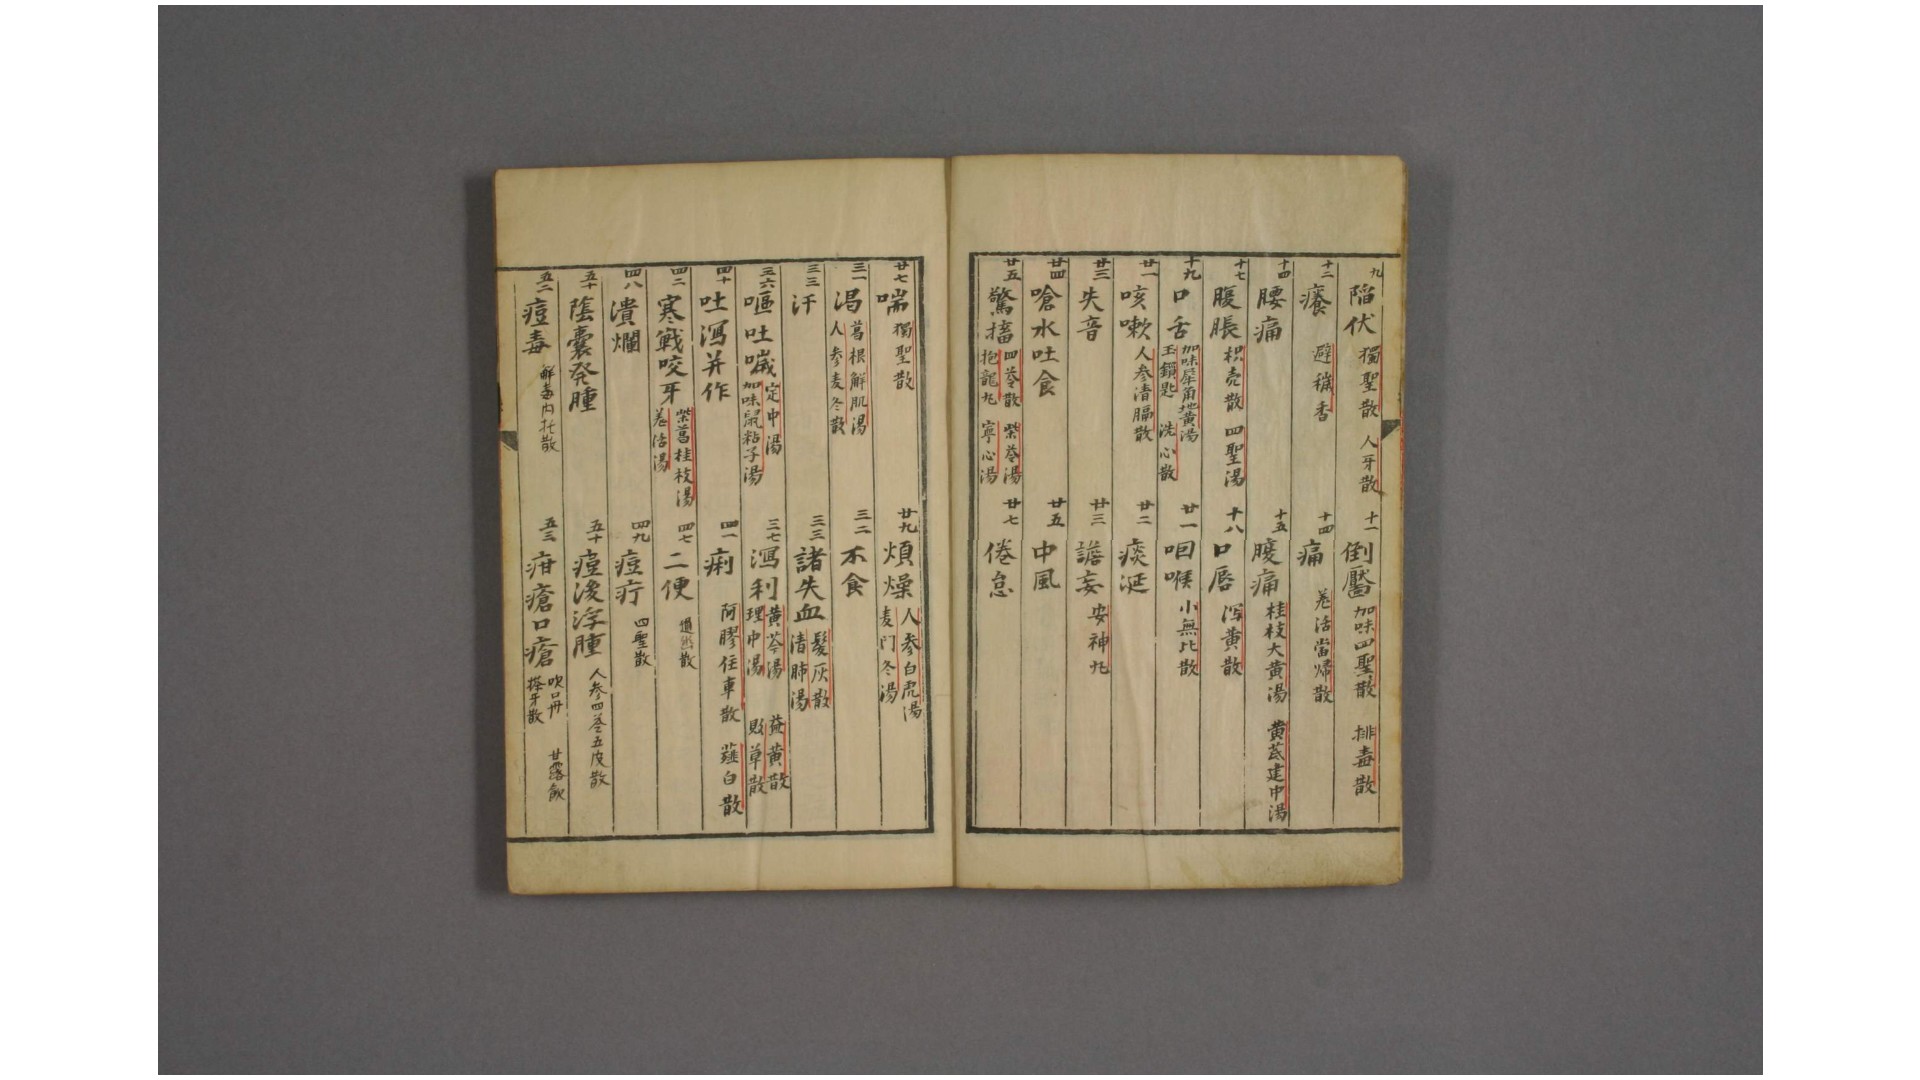 九 陷伏 獨聖散 人牙散 十一 倒靨 加味四聖散 排毒散
十二 癢 避穢香 十四 痛 羗活當帰散
十四 腰痛 十五 腹痛 桂枝大黄湯 黄芪建中湯
十七 腹脹 枳壳散 四聖湯 十八 口唇 泻黄散
十九 口舌 加味犀角地黄湯 玉鎖匙 洗心散 廿一 咽喉 小無比散
廿一 咳嗽 人参清膈散 廿二 痰涎
廿三 失音 廿三 譫妄 安神丸
廿四 嗆水吐食 廿五 中風
廿五 驚搐 四苓散 柴苓湯 抱龍丸 寧心湯 廿七 倦怠
廿七 喘 獨聖散 廿九 煩燥 人参白虎湯 麦門冬湯
三一 渴 葛根解肌湯 人参麦冬散 三二 不食
三三 汗 三三 諸失血 髮灰散 清肺湯
三六 嘔吐噦 定中湯 加味鼠粘子湯 三七 瀉利 黄芩湯 益黄散 理中湯 敗草散
四十 吐瀉并作 四一 痢 阿膠住車散 薤白散
四二 寒戦咬牙 柴葛桂枝湯 羗活湯 四七 二便 散
四八 潰爛 四九 痘疔 四聖散
五十 陰囊発腫 五十 痘後浮腫 人参四苓五皮散
五二 痘毒 解毒内托散 五三 疳瘡口瘡 吹口丹 搽牙散 甘露飲